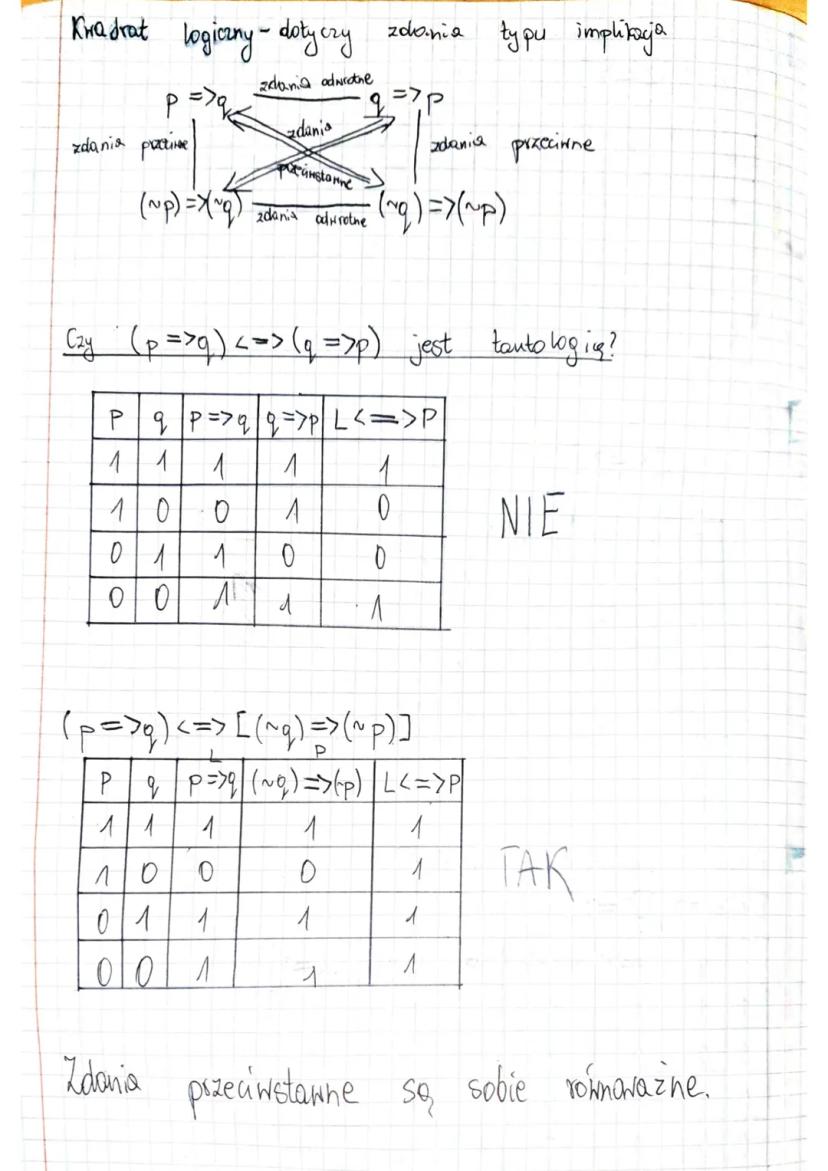 Kwadrat logiczny - dotyczy zdania typu implikacja
p => q zdania odwrotne q => p
zdania przeciwne zdania przeciwstawne zdania przeciwne
(~p) => (~q) zdania odwrotne (~q) => (~p)
Czy (p => q) <=> (q => p) jest tautologią?
p q p => q q => p L <=> P
1 1 1 1 1
1 0 0 1 0
0 1 1 0 0
0 0 1 1 1
NIE
(p => q) <=> [(~q) => (~p)]
L P
p q p => q (~q) => (~p) L <=> P
1 1 1 1 1
1 0 0 0 1
0 1 1 1 1
0 0 1 1 1
TAK
Zdania przeciwstawne są sobie równoważne.